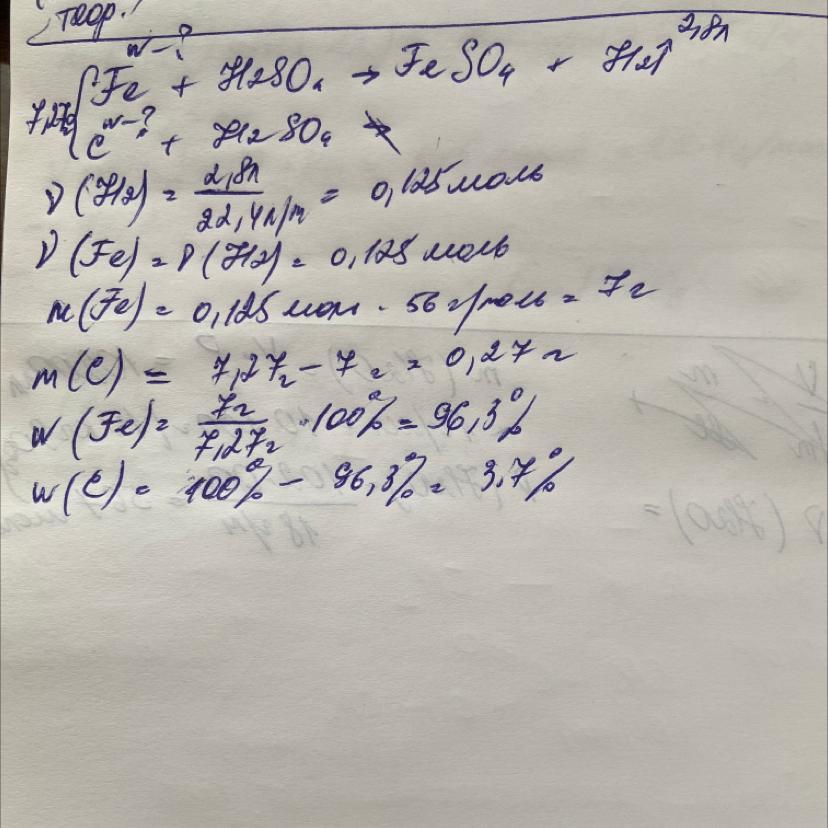 теор.
w-?
7,27г { Fe + H2SO4 → FeSO4 + H2↑ 2,8л
w-?
C + H2SO4 ↛
ν(H2) = 2,8л / 22,4л/м = 0,125 моль
ν(Fe) = ν(H2) = 0,125 моль
m(Fe) = 0,125 мол · 56 г/моль = 7г
m(C) = 7,27г - 7г = 0,27г
w(Fe) = 7г / 7,27г · 100% = 96,3%
w(C) = 100% - 96,3% = 3,7%